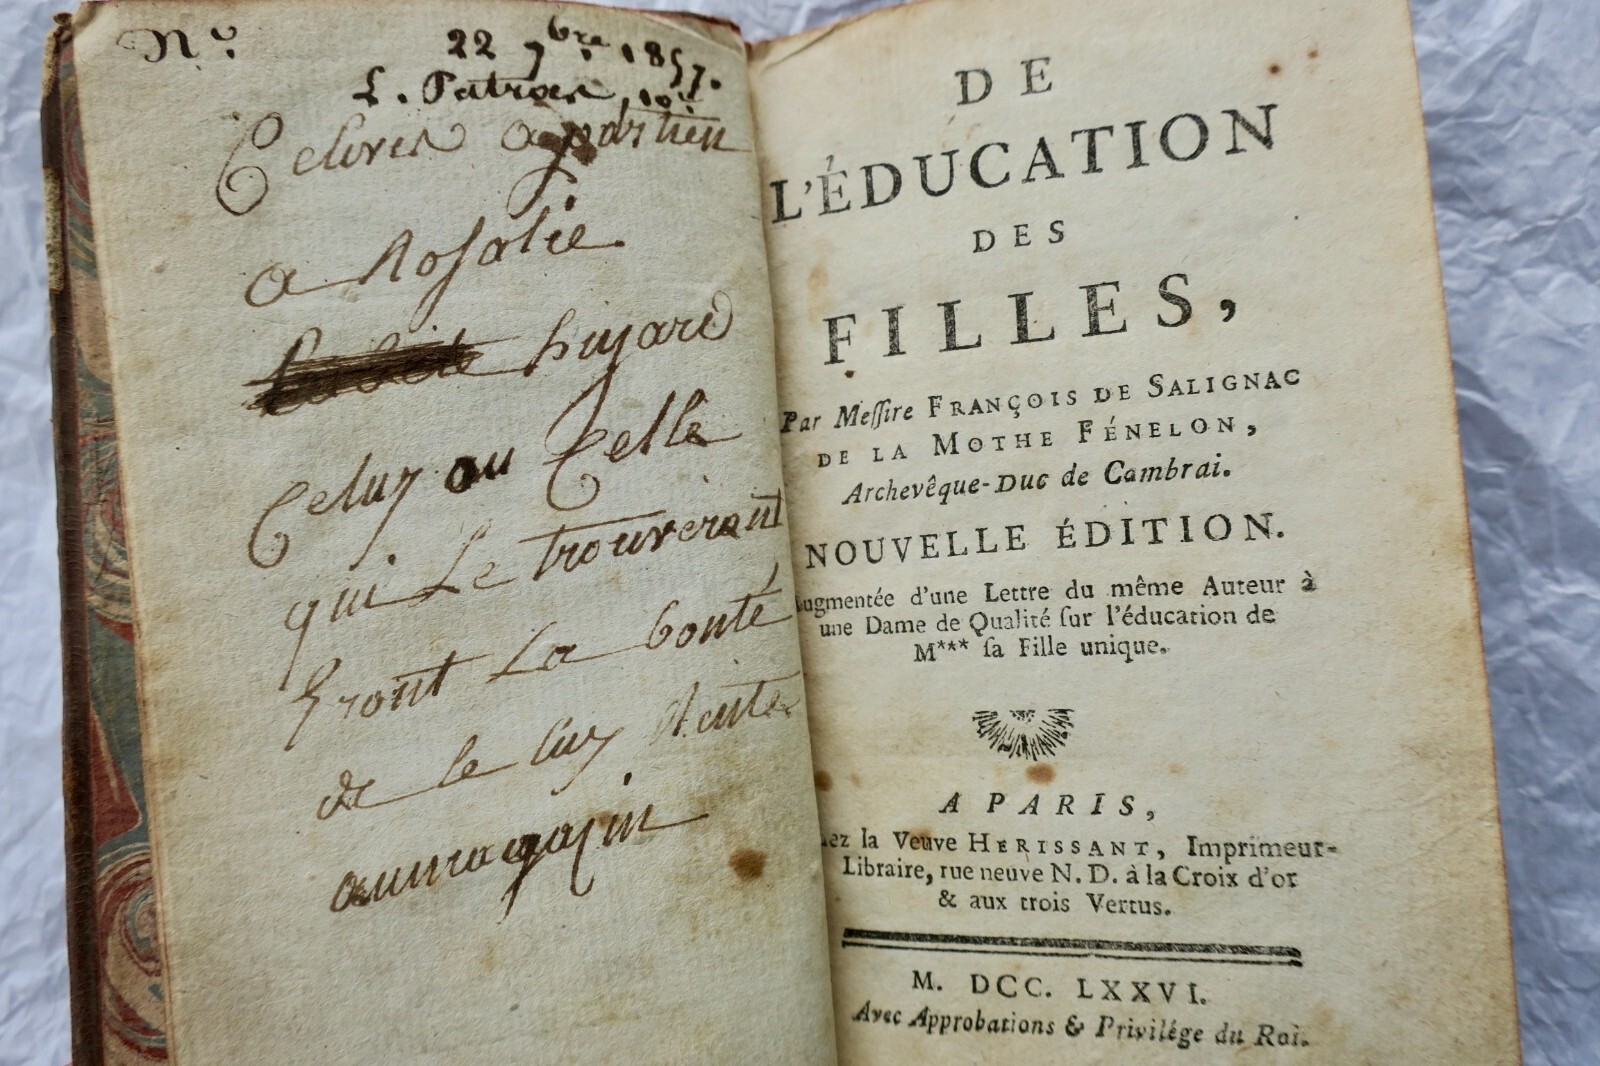 N.º
22 9bre. 1857.
L. Patrois
Celivres apartien
a Rosalie
hujard
Celuy ou Celle
qui Le trouveront
Front La bonté
de le luy
aumagasin
DE
L'ÉDUCATION
DES
FILLES,
Par Meſſire FRANÇOIS DE SALIGNAC
DE LA MOTHE FÉNELON,
Archevêque-Duc de Cambrai.
NOUVELLE ÉDITION.
Augmentée d'une Lettre du même Auteur à
une Dame de Qualité ſur l'éducation de
M*** ſa Fille unique.
A PARIS,
Chez la Veuve HERISSANT, Imprimeur-
Libraire, rue neuve N. D. à la Croix d'or
& aux trois Vertus.
M. DCC. LXXVI.
Avec Approbations & Privilége du Roi.